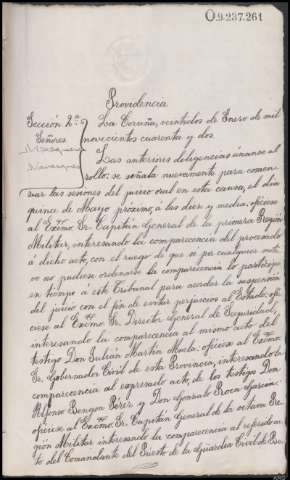 O.9.237.261
Providencia
Sección 2ª La Coruña, veintidos de Enero de mil
Señores novecientos cuarenta y dos
Las anteriores diligencias únanse al
rollo: se señala nuevamente para comen-
zar las sesiones del juicio oral en esta causa, el dia
quince de Mayo próximo, á las diez y media; ofíciese
al Excmo. Sr. Capitán General de la primera Región
Militar, interesando la comparecencia del procesado
á dicho acto, con el ruego de que si por cualquier moti-
vo no pudiese ordenarse la comparecencia lo participe
en tiempo á este Tribunal para acordar la suspensión
del juicio con el fin de evitar perjuicios al Estado; ofí-
ciese al Excmo. Sr. Director General de Seguridad,
interesando la comparecencia al mismo acto del
testigo Don Julián Martín
ofíciese al Excmo.
Sr. Gobernador Civil de esta Provincia, interesando la
comparecencia al expresado acto, de los testigos Don
Alfonso Pérez y Don Gonzalo
ofíciese al Excmo. Sr. Capitán General de la octava Re-
gión Militar interesando la comparecencia al referido ac-
to del Comandante del Puesto de la Guardia Civil de